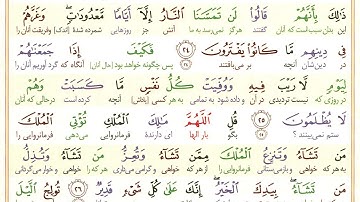 ذَٰلِكَ بِأَنَّهُمْ قَالُوا لَن تَمَسَّنَا النَّارُ إِلَّا أَيَّامًا مَّعْدُودَاتٍ وَغَرَّهُمْ
این بدان سبب است که آنان گفتند هرگز نمی‌رسد به ما آتش جز روزهایی شمرده شدهٔ [اندک] وفریفت آنان را
فِي دِينِهِم مَّا كَانُوا يَفْتَرُونَ ٢٤ فَكَيْفَ إِذَا جَمَعْنَاهُمْ
در دین‌شان آنچه بر می‌بافتند پس چگونه خواهد بود [حال آنان] آنگاه که گرد آوریم آنان را
لِيَوْمٍ لَّا رَيْبَ فِيهِ وَوُفِّيَتْ كُلُّ نَفْسٍ مَّا كَسَبَتْ وَهُمْ
در روزی که نیست تردیدی در آن و به تمامی داده شود به هر کسی [پاداش] آنچه کرده است درحالی که آنان
لَا يُظْلَمُونَ ٢٥ قُلِ اللَّهُمَّ مَالِكَ الْمُلْكِ تُؤْتِي الْمُلْكَ
ستم نمی‌بینند بگو بار الها ای دارندهٔ فرمانروایی می‌دهی فرمانروایی را
مَن تَشَاءُ وَتَنزِعُ الْمُلْكَ مِمَّن تَشَاءُ وَتُعِزُّ مَن تَشَاءُ وَتُذِلُّ
به هر که خواهی فرمانروایی را از هر که خواهی و گرامی می‌داری هر که را خواهی
مَن تَشَاءُ بِيَدِكَ الْخَيْرُ إِنَّكَ عَلَىٰ كُلِّ شَيْءٍ قَدِيرٌ ٢٦ تُولِجُ اللَّيْلَ